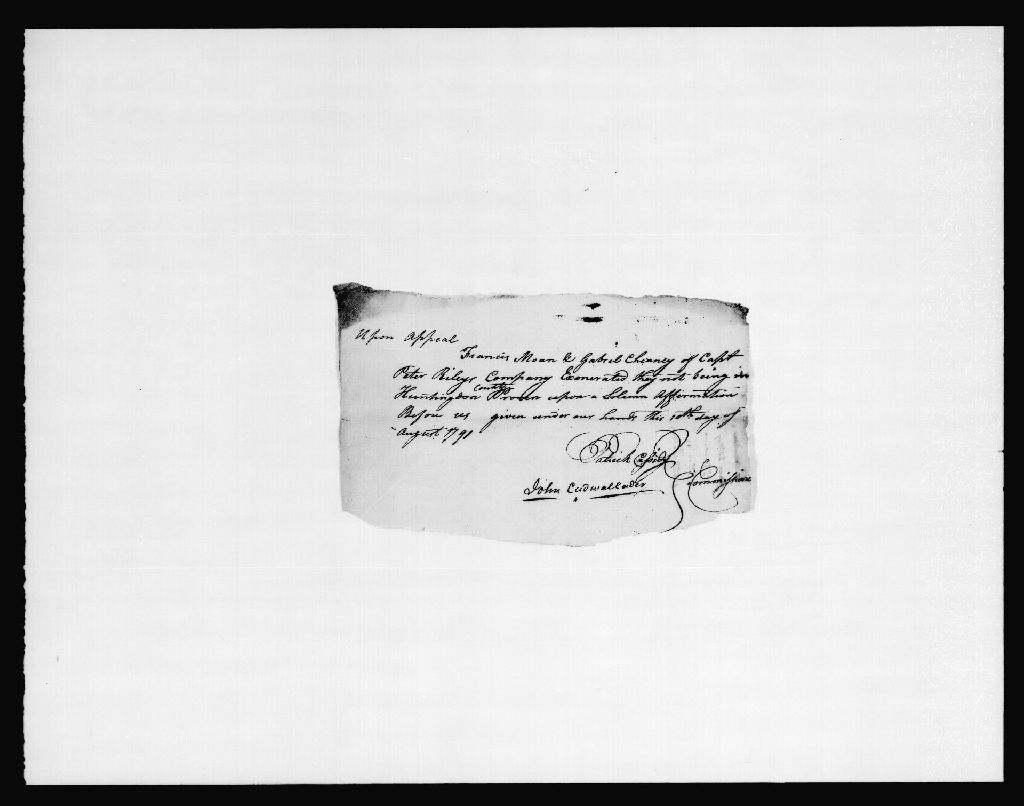 Upon Appeal
Francis Moan & Gabril Cheaney of Capt
Peter Rileys Company Exonerated they not being in
Huntingdon County Proven upon a Solemn Affermation
Before us given under our hands this 10th day of
August 1791
Patrick Cassidy
John Cadwallader Commissioners